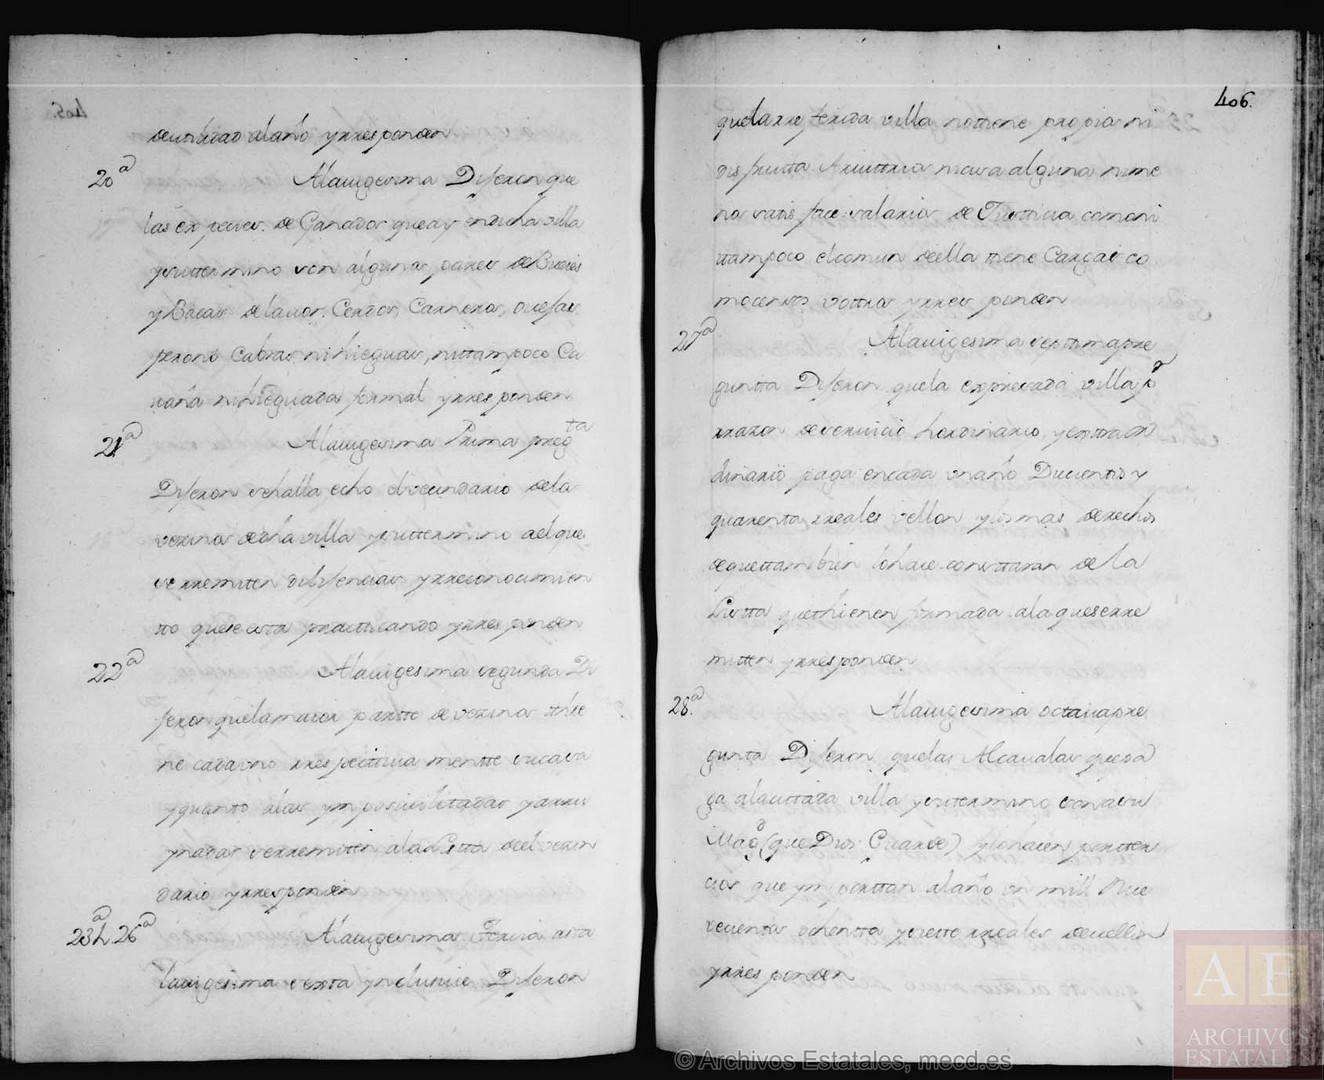 de utilidad al año y rresponden
20ª Alauigesima Dixeron que
las expecies de Ganados que ay en dicha villa
y su ttermino son algunos pares de Bueies
y Bacas de lauor, Cerdos, Carneros, ouejas
pero no Cabras ni hieguas, ni ttampoco Ca
uaña ni hieguada formal y rresponden
21ª Alauigesima Prima pregta
Dixeron se halla echo el vecindario de la
vezina dcha villa y su ttermino a el que
se rremiten dilixencias y rreconocimien
tto que se esta practticando y rresponden
22ª Alauigesima segunda Di
xeron que la maior partte de vezinos thie
ne cada uno rrespecttiua mentte su casa
y quanto a las ymposiuilitadas y arrui
ynadas se rremiten a la Listta del vezin
dario y rresponden
23ª h. 26ª Alauigesima Terzia asta
la uigesima sexta ynclusiue Dixeron
405.
406.
que la rreferida villa no ttiene propios ni
disfrutta Arvittrios ni cosa alguna ni me
no sattisface salarios de Justticia como ni
ttampoco el comun de ella ttiene Cargas co
mo censos v ottras y rresponden
27ª Alauigesima septtima pre
guntta Dixeron que la expresada villa pr
rrazon de seruicio hordinario y exttrahor
dinario paga en cada un año Ducientos y
quarenta rreales vellon y los mas derechos
de que ttambien lo hace consttaran de la
Listta que thienen formada a la que se rre
mitten y rresponden
28ª Alauigesima octaua pre
gunta Dixeron que las Alcaualas que pa
ga la cittada villa y su termino son a su
Magd (que Dios Guarde) y lo haien por tter
cios que ymporttan al año un mill Nue
uecientos ochentta y siette rreales de vellon
y rresponden
AE
ARCHIVOS
ESTATALES
© Archivos Estatales, mecd.es